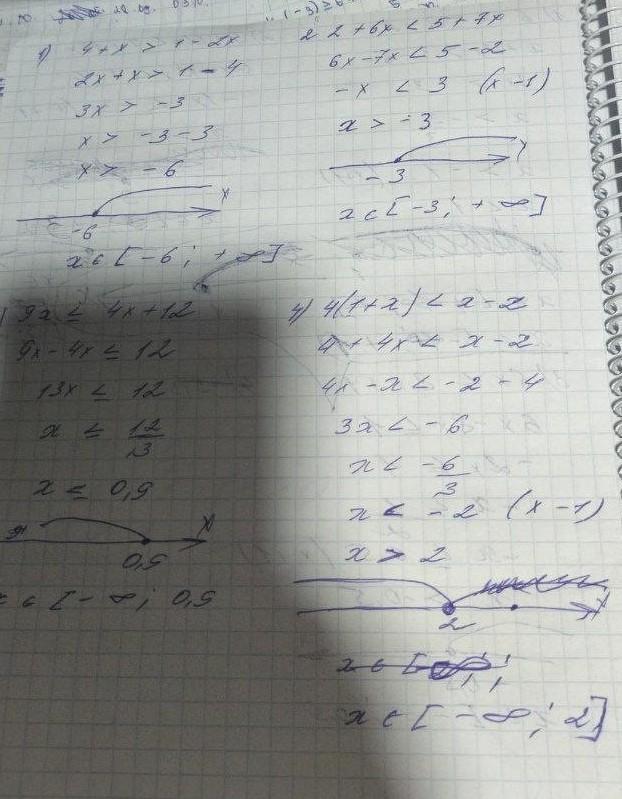 1) 4+x > 1-2x
2x+x > 1-4
3x > -3
x > -3-3
x > -6
x
-6
x ∈ [-6; +∞]
2 2+6x < 5+7x
6x-7x < 5-2
-x < 3 (x-1)
x > -3
-3
x ∈ [-3; +∞]
9x ≤ 4x+12
9x-4x ≤ 12
13x ≤ 12
x ≤ 12/13
x ≤ 0,9
x
0,9
x ∈ [-∞; 0,9
4) 4(1+x) < x-2
4+4x < x-2
4x-x < -2-4
3x < -6
x < -6/3
x < -2 (x-1)
x > 2
2
x ∈ [-∞; 2]